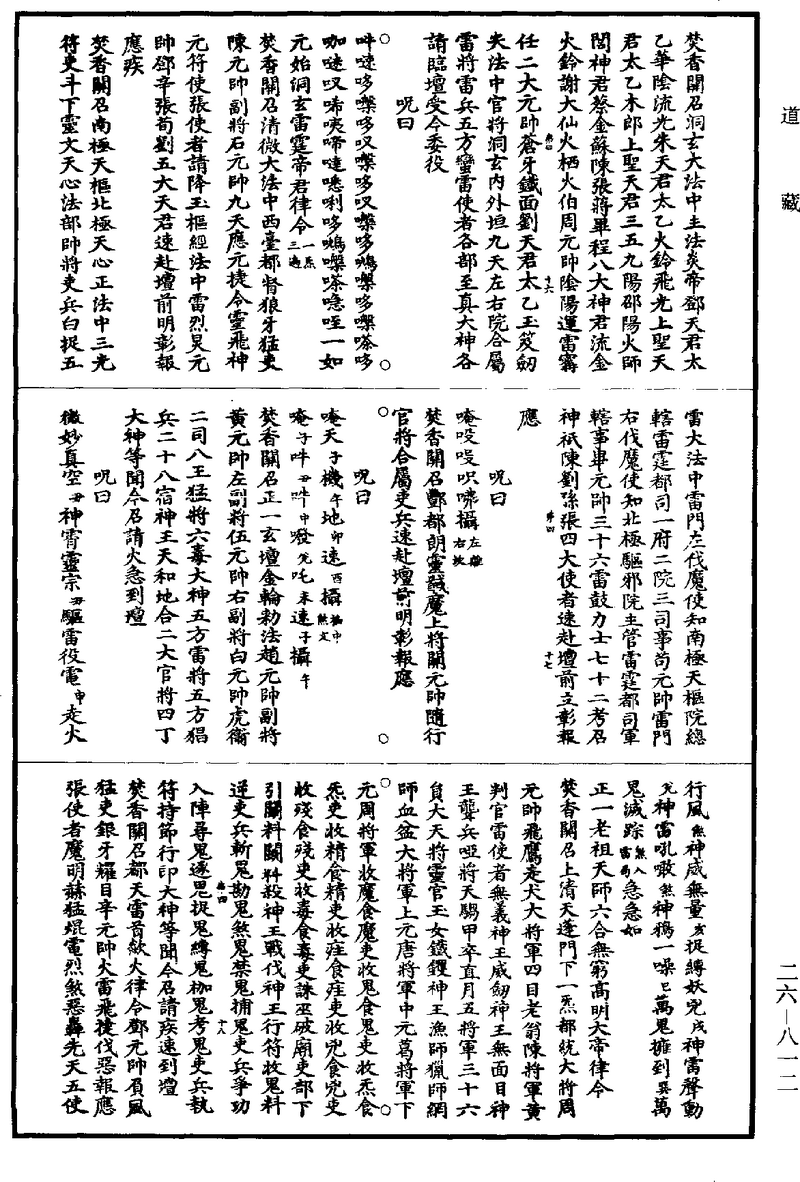 道藏
焚香關召洞玄大法中主法炎帝鄧天君太
乙華陰流光朱天君太乙火鈴飛光上聖天
君太乙木郎上聖天君三五九陽邵陽火師
閻神君蔡金蘇陳張蔣畢程八大神君流金
火鈴謝大仙火栖火伯周元帥陰陽運雷霹
任二大元帥蒼牙鐵面劉天君太乙玉笈劒
夫法中官將洞玄內外垣九天左右院合屬
雷將雷兵五方蠻雷使者各部至真大神各
請臨壇受今委役
呪曰
元始洞玄雷霆帝君律令一炁三遍
焚香關召清微大法中西臺都督狼牙猛吏
陳元帥副將石元帥九天應元捷令靈飛神
元符使張使者請降玉樞經法中雷烈昊元
帥鄧辛張荀劉五大天君速赴壇前明彰報
應疾
焚香關召南極天樞北極天心正法中三光
符吏斗下靈文天心法部帥將吏兵白捉五
雷大法中雷門左伐魔使知南極天樞院總
轄雷霆都司一府二院三司事苟元帥雷門
右伐魔使知北極驅邪院主管雷霆都司軍
轄事畢元帥三十六雷鼓力士七十二考召
神祇陳劉孫張四大使者速赴壇前立彰報
應
呪曰
焚香關召酆都朗靈馘魔上將關元帥隨行
官將合屬吏兵速赴壇前明彰報應
呪曰
唵天子機午地卯速酉攝
焚香關召正一玄壇金輪勑法趙元帥副將
黃元帥左副將伍元帥右副將白元帥虎衞
二司八王猛將六毒大神五方雷將五方猖
兵二十八宿神王天和地合二大官將四丁
大神等聞今召請火急到壇
呪曰
微妙真空丑神霄靈宗丑驅雷役電申走火
行風煞神威無量亥捉縛妖兇戌神雷聲動
兇神雷吼噉煞神鴉一噪巳萬鬼擁到巽萬
鬼滅踪煞入雷局急急如
正一老祖天師六合無窮高明大帝律令
焚香關召上清天蓬門下一炁都統大將周
元帥飛鷹走犬大將軍四目老翁陳將軍黃
判官雷使者無義神王威劒神王無面目神
王聾兵啞將天騶甲卒直月五將軍三十六
員大天將靈官玉女鐵鑊神王漁師獵師網
師血盆大將軍上元唐將軍中元葛將軍下
元周將軍收魔食魔吏收鬼食鬼吏收炁食
炁吏收精食精吏收痓食痓吏收兇食兇吏
收殘食殘吏收毒食毒吏誅巫破廟吏部下
引關料關料殺神王戰伐神王行符收鬼料
逆吏兵斬鬼勘鬼煞鬼禁鬼捕鬼吏兵爭功
入陣尋鬼逐鬼捉鬼縛鬼枷鬼考鬼吏兵執
符持節行印大神等聞今召請疾速到壇
焚香關召都天雷首歘火律令鄧元帥負風
猛吏銀牙耀目辛元帥火雷飛捷伐惡報應
張使者魔明赫猛焜電烈煞惡轟先天五使
二六—八一二